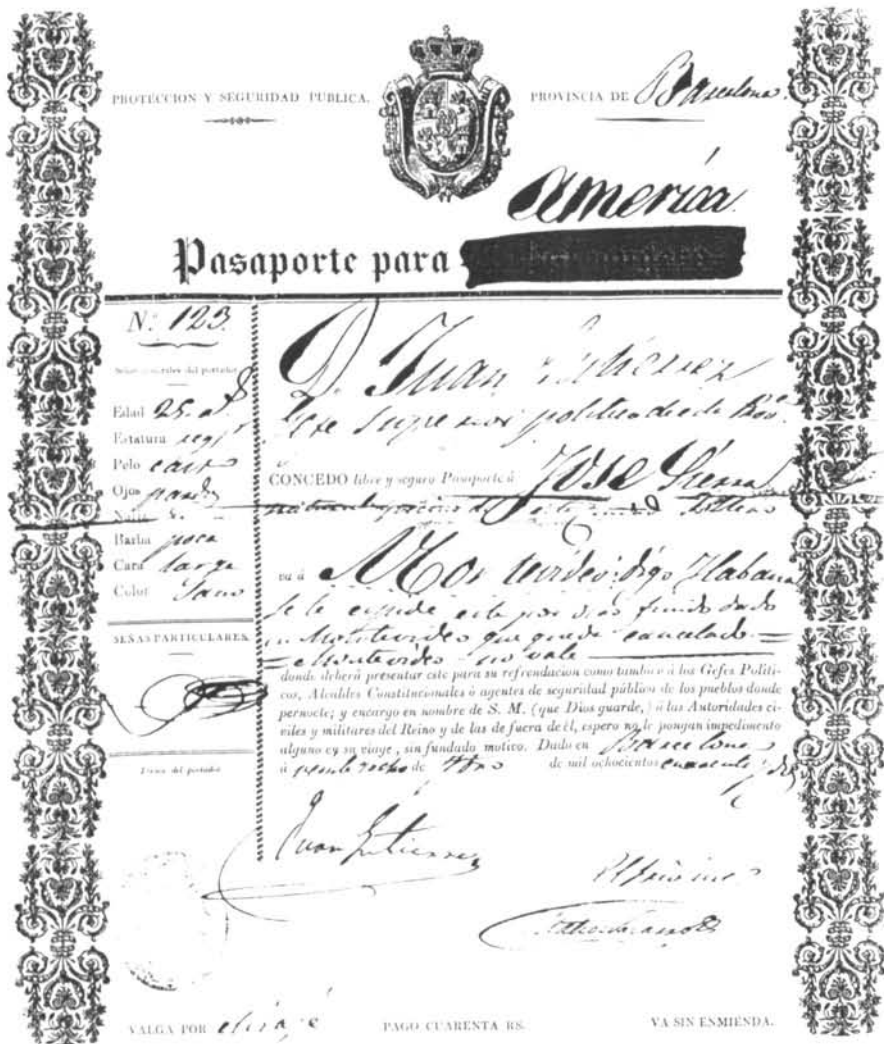 PROTECCION Y SEGURIDAD PUBLICA.
PROVINCIA DE Barcelona.
America
Pasaporte para
N.º 123.
Señas generales del portador
Edad 25. a.s
Estatura reg.r
Pelo cast.o
Ojos pardos
Nariz r.
Barba poca
Cara larga
Color Sano
SEÑAS PARTICULARES.
Firma del portador
D. Juan Gutierrez
Gefe Superior politico de
CONCEDO libre y seguro Pasaporte á José Sierra
natural y vecino de esta ciudad Soltero
va á Montevideo: digo Habana
Se le espide este por otro
en Montevideo que queda cancelado =
= Montevideo - no vale
donde deberá presentar este para su refrendacion como tambien á los Gefes Politi-
cos, Alcaldes Constitucionales ó agentes de seguridad público de los pueblos donde
pernocte; y encargo en nombre de S. M. (que Dios guarde,) á las Autoridades ci-
viles y militares del Reino y de las de fuera de él, espero no le pongan impedimento
alguno en su viage, sin fundado motivo. Dado en Barcelona
á veinte y ocho de de mil ochocientos cuarenta y
Juan Gutierrez
VALGA POR el viage
PAGO CUARENTA RS.
VA SIN ENMIENDA.